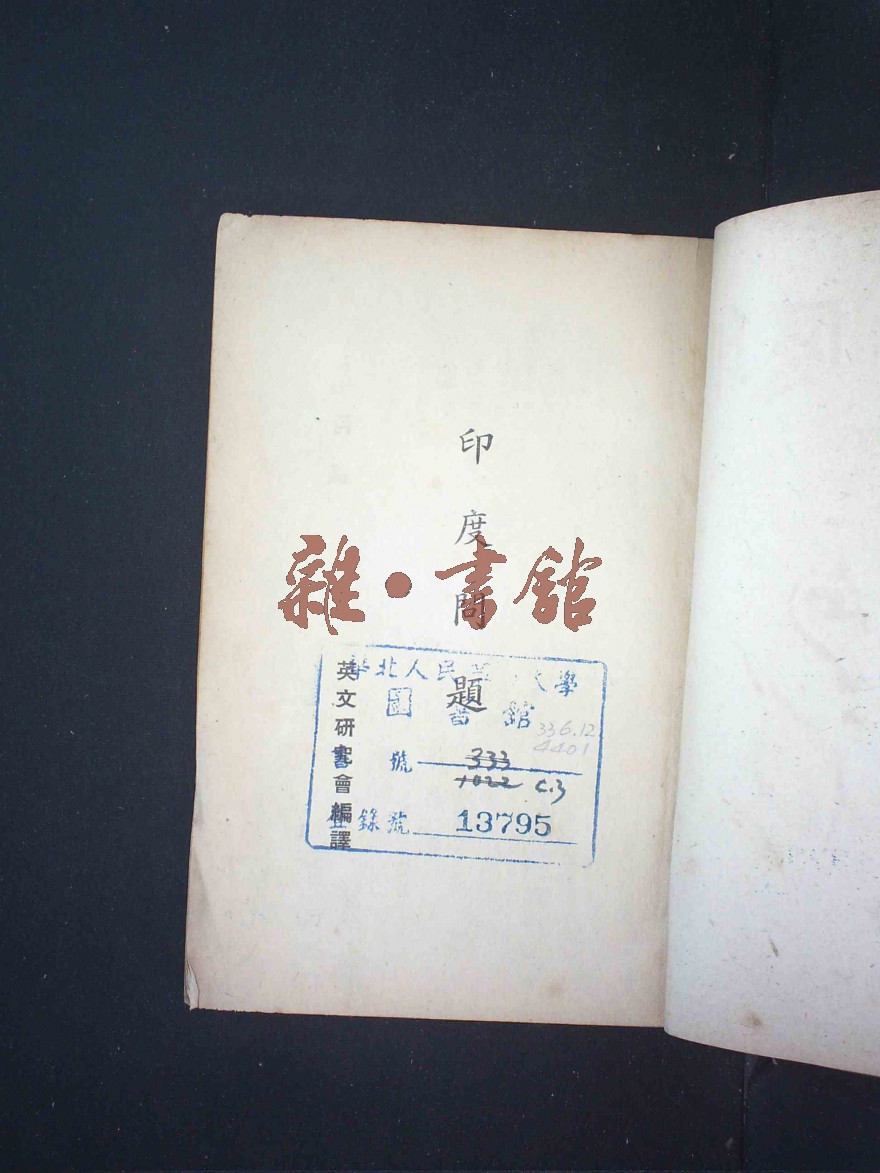 印度問題
雜•書館
英文研究會編譯
華北人民革大學
圖書館
336.12
4401
號 333
1022 C.3
登錄號 13795